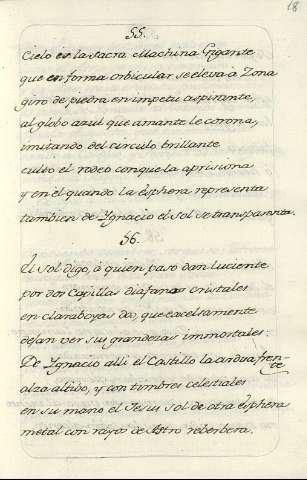 18
55.
Cielo es la sacra Machina Gigante
que en forma orbicular se eleva à Zona
giro de piedra en impetu aspirante,
al globo azul que amante le corona,
imitando del circulo brillante
culto el rodeo conque la aprisiona
y en el quando la Esphera representa
tambien de Ygnacio el Sol se transparenta.
56.
El Sol digo, à quien paso dan luciente
por dos Capillas diafanos cristales
en claraboyas do, que excelsamente
dejan ver sus grandezas immortales:
De Ygnacio alli el Castillo la ardua frente
alza altibo, y con timbres celestiales
en su mano el Jesus sol de otra Esphera
metal con rayos de Astro reberbera.